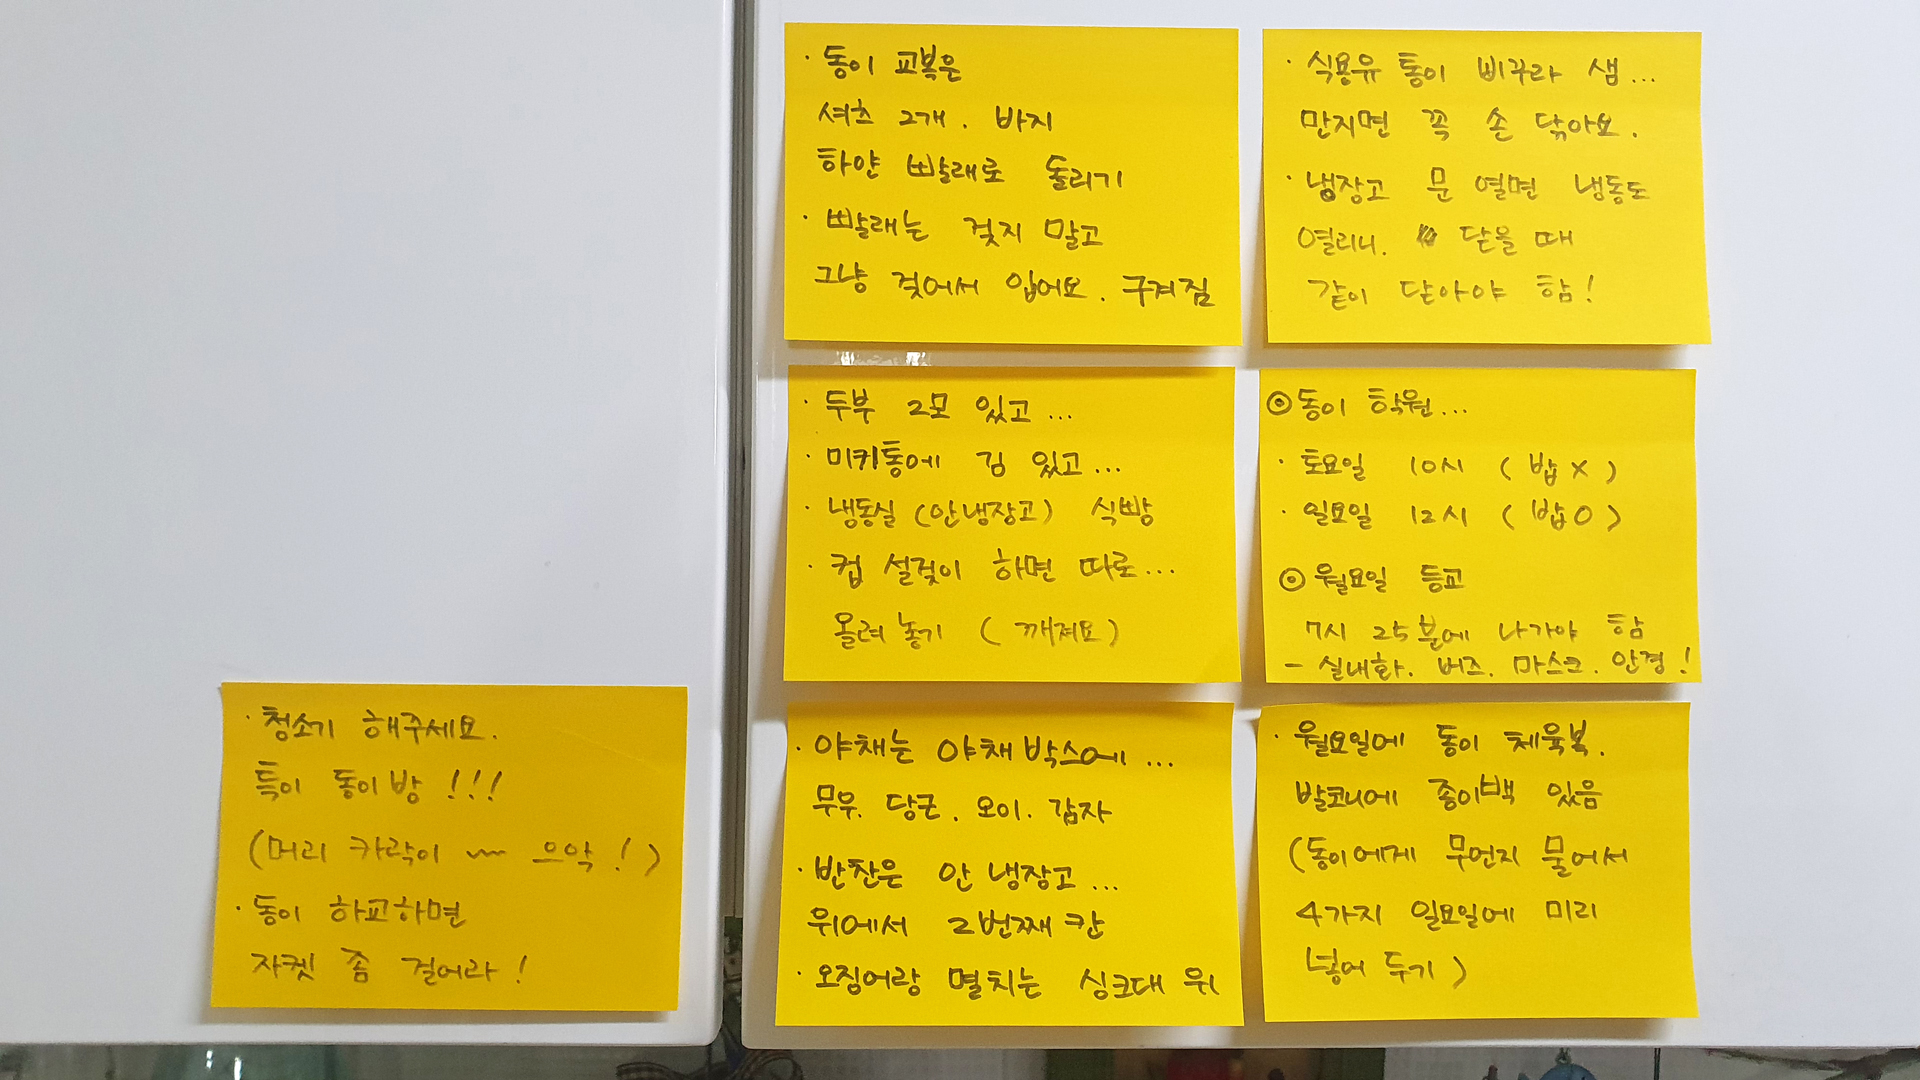 · 동이 교복은
셔츠 2개. 바지
하얀 빨래로 돌리기
· 빨래는 겆지 말고
그냥 겆어서 입어요. 구겨짐
· 식용유 통이 삐꾸라 샘...
만지면 꼭 손 닦아요.
· 냉장고 문 열면 냉동도
열리니. 닫을 때
같이 닫아야 함!
· 두부 2모 있고...
· 미키통에 김 있고...
· 냉동실 (안냉장고) 식빵
· 컵 설겆이 하면 따로...
올려놓기 (깨져요)
◎ 동이 학원...
· 토요일 10시 (밥X)
· 일요일 12시 (밥O)
◎ 월요일 등교
7시 25분에 나가야 함
- 실내화. 버즈. 마스크. 안경!
· 청소기 해주세요.
특이 동이방!!!
(머리 카락이 ~~ 으악!)
· 동이 하교하면
자켓 좀 걸어라!
· 야채는 야채박스에...
무우. 당근. 오이. 감자
· 반찬은 안 냉장고...
위에서 2번째 칸
· 오징어랑 멸치는 싱크대 위
· 월요일에 동이 체육복.
발코니에 종이백 있음
(동이에게 무언지 물어서
4가지 일요일에 미리
넣어 두기)